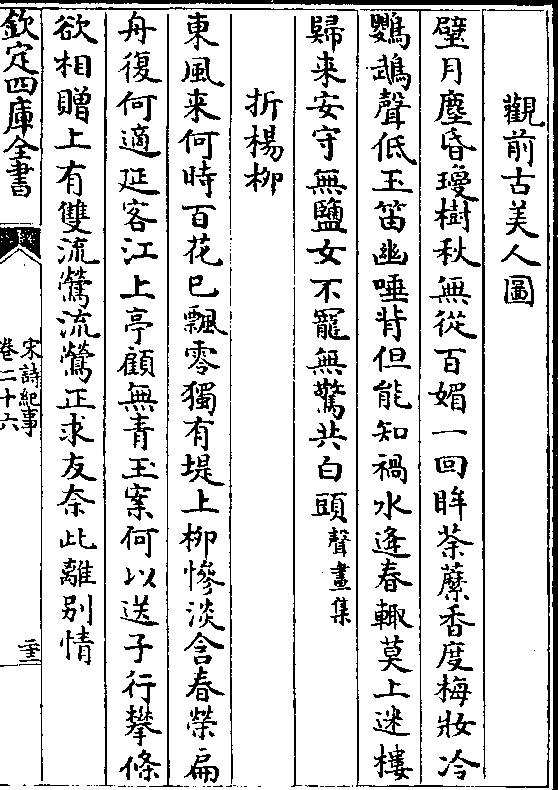 觀前古美人圖
璧月塵昏瓊樹秋無從百媚一回眸荼蘼香度梅妝冷
鸚鵡聲低玉笛幽唾背但能知禍水逢春輙莫上迷樓
歸来安守無鹽女不寵無驚共白頭聲畫集
折楊柳
東風来何時百花已飄零獨有堤上柳惨淡含春榮扁
舟復何適延客江上亭顧無青玉案何以送子行攀條
欲相贈上有雙流鶯流鶯正求友奈此離别情
欽定四庫全書
宋詩紀事
卷二十六